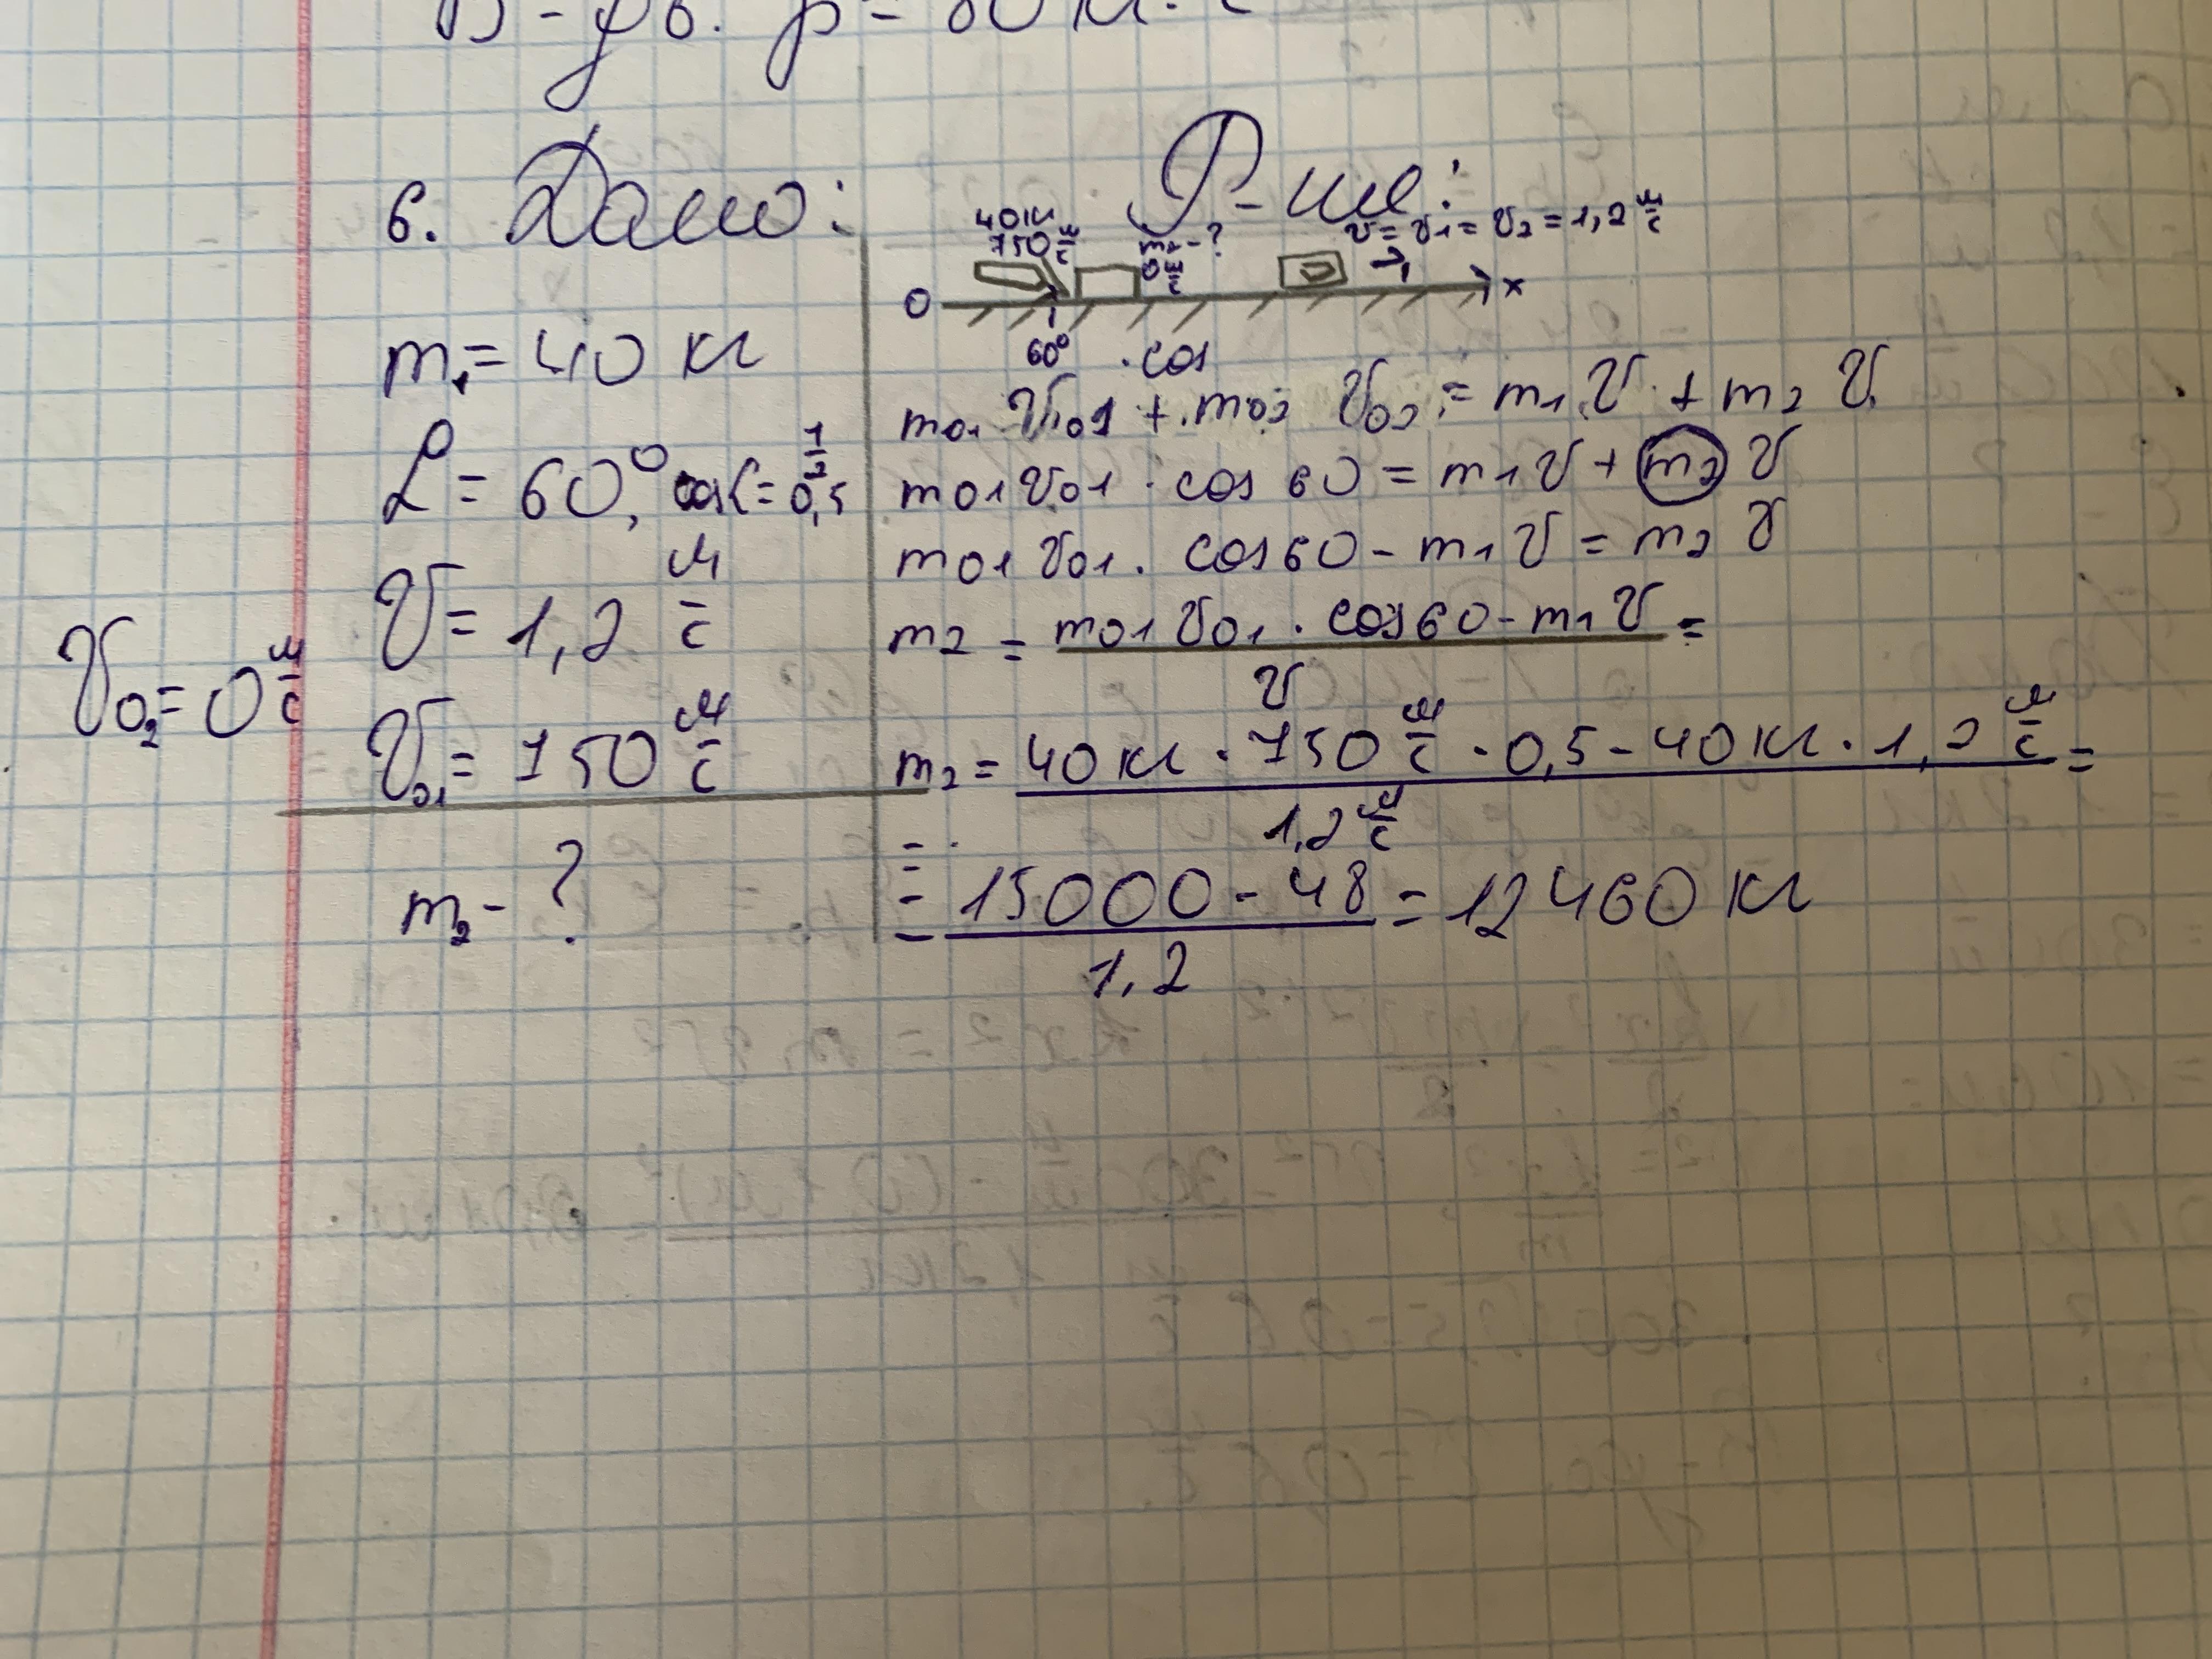 6. Дано:
m₁ = 40 кг
L = 60°, cos L = 1/2 0,5
V = 1,2 м/с
V₀₂ = 0 м/с
V₀₁ = 750 м/с
m₂ - ?
Р-ние:
40кг
750 м/с
m₂ - ?
0 м/с
V = V₁ = V₂ = 1,2 м/с
0
x
60°
· cos
m₀₁ V₀₁ + m₀₂ V₀₂ = m₁ V + m₂ V
m₀₁ V₀₁ · cos 60 = m₁ V + m₂ V
m₀₁ V₀₁ · cos 60 - m₁ V = m₂ V
m₂ = (m₀₁ V₀₁ · cos 60 - m₁ V) / V =
m₂ = (40 кг · 750 м/с · 0,5 - 40 кг · 1,2 м/с) / (1,2 м/с) =
= (15000 - 48) / 1,2 = 12460 кг